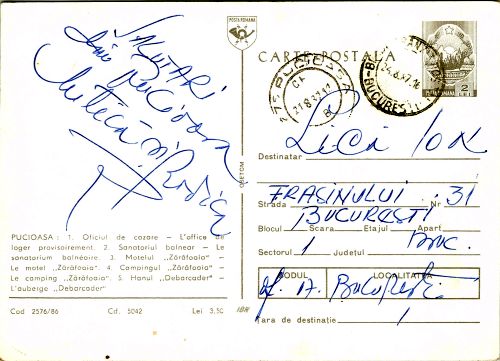 SALUTARI
din PUCIOASA
Mitică și Rodica
PUCIOASA : 1. Oficiul de cazare — L'office de
loger provisoirement. 2. Sanatoriul balnear — Le
sanatorium balnéaire. 3. Motelul „Zărăfoaia" —
Le motel „Zărăfoaia". 4. Campingul „Zărăfoaia" —
Le camping „Zărăfoaia". 5. Hanul „Debarcader" —
L'auberge „Debarcader"
Cod 2576/86 Cd. 5042 Lei 3,50
POSTA ROMANA
CARTE POSTALA
PUCIOASA
BUCURESTI
2
Destinatar Lica Ion
Strada FRASINULUI Nr 31
BUCURESTI
Blocul Scara Etajul Apart
Sectorul 1 Județul Buc.
CODUL LOCALITATEA
București
1
Țara de destinație